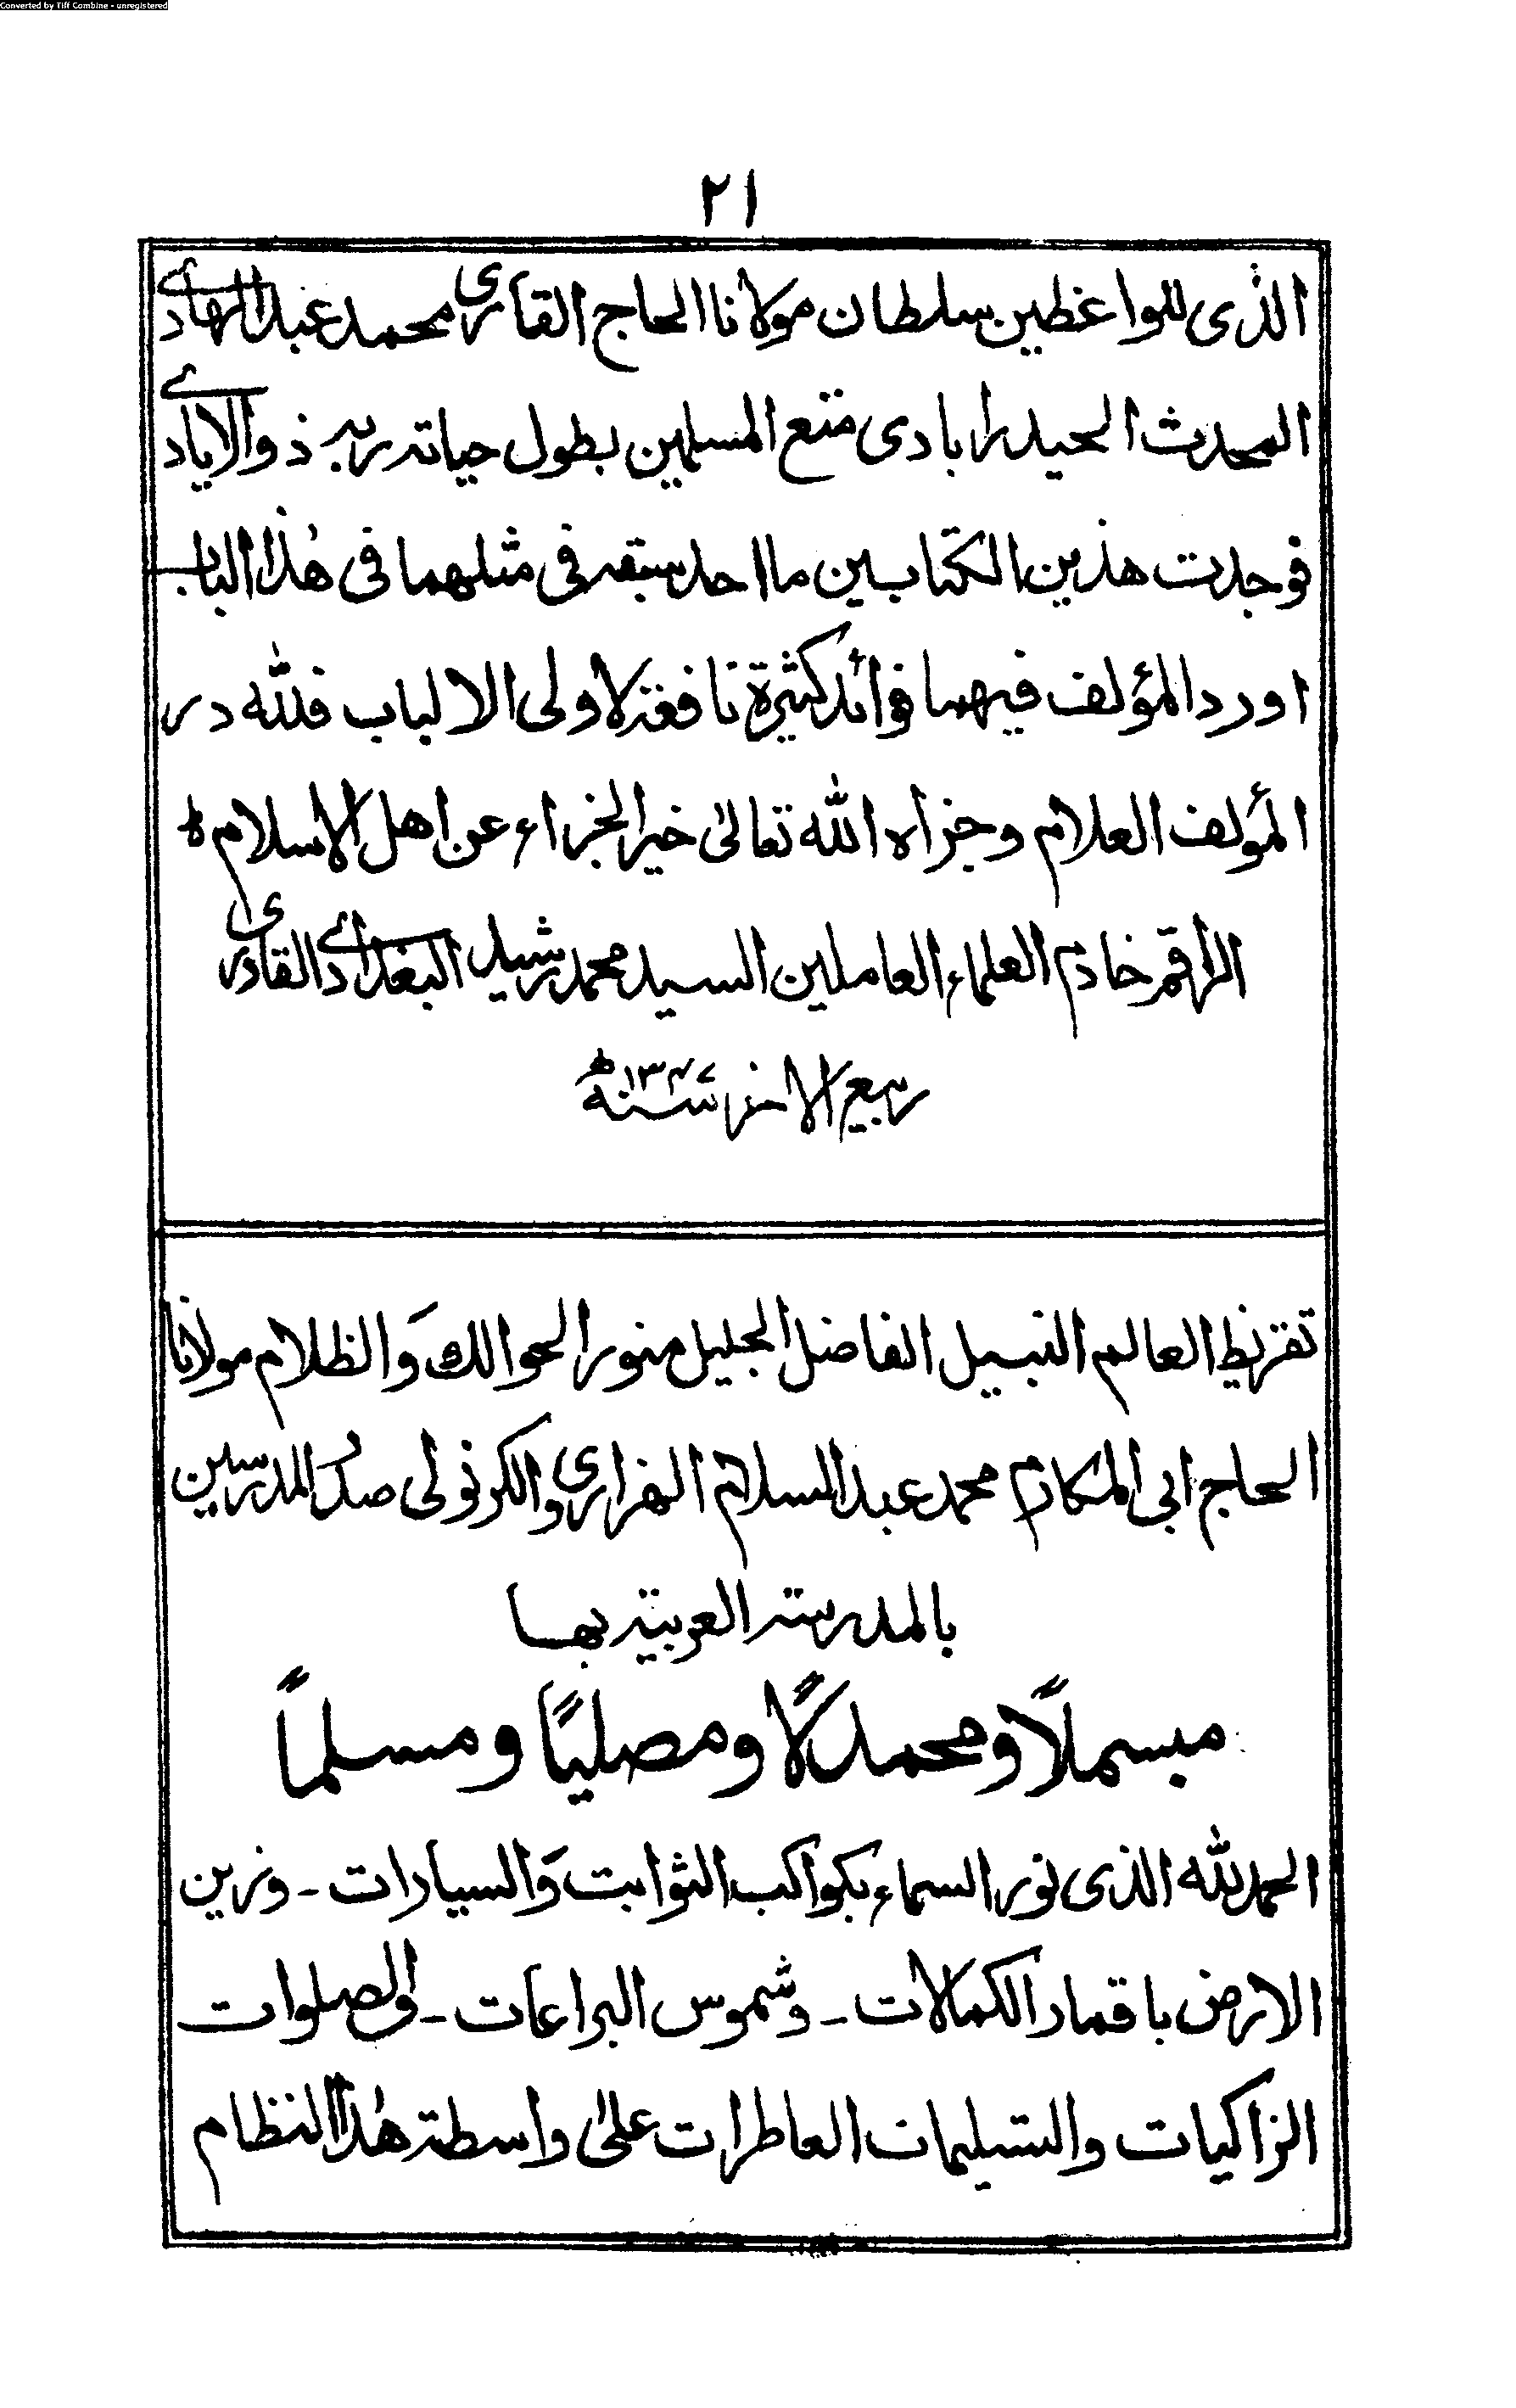 Converted by Tiff Combine - unregistered
٢١
الذى للواعظين سلطان مولانا الحاج القارى محمد عبد الهادى
المحدث الحيدرابادى متع المسلمين بطول حياته ربه ذوالايادى
فوجدت هذين الكتابين ما احد سبقه فى مثلهما فى هذا الباب
اورد المؤلف فيهما فوائد كثيرة نافعة لاولى الالباب فلله در
المؤلف العلام وجزاه الله تعالىٰ خير الجزاء عن اهل الاسلام ه
الراقم خادم العلماء العاملين السيد محمد رشيد البغدادى القادرى
ربيع الاخر سنه ١٣٤٧ھ
تقريظ العالم النبيل الفاضل الجليل منور الحوالك وَالظلام مولانا
الحاج ابى المكارم محمد عبد السلام الهزاروى والكرنولى صدر المدرسين
بالمدرسة العربية بها
مبسملاً ومحمدلاً ومصلياً ومسلماً
الحمد لله الذى نور السماء بكواكب الثوابت وَالسيارات ـ وزين
الارض باقمار الكمالات ـ وشموس البراعات ـ والصلوات
الزاكيات والتسليمات العاطرات علىٰ واسطة هٰذا النظام